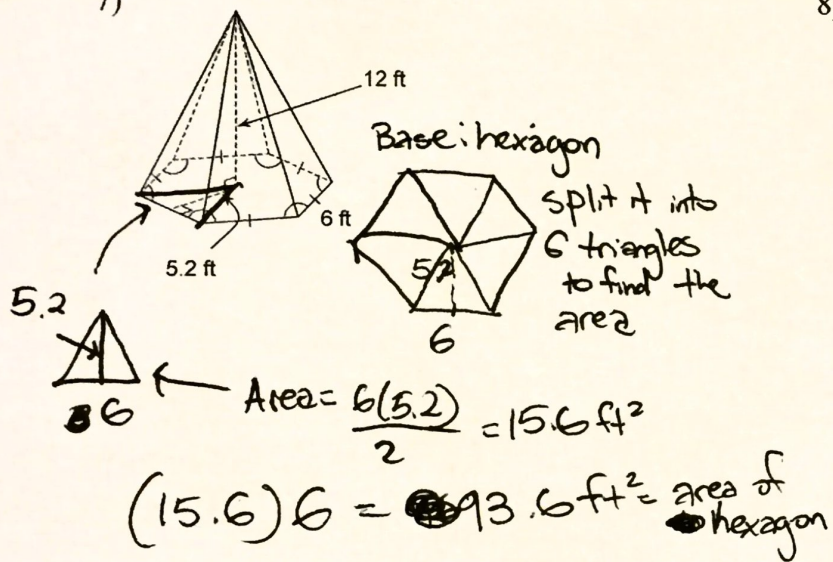 7)
8
12 ft
Base: hexagon
split it into
6 triangles
to find the
area
6 ft
5.2 ft
5.2
6
5.2
6
Area = 6(5.2)
2
= 15.6 ft²
(15.6)6 = 93.6 ft² = area of
hexagon